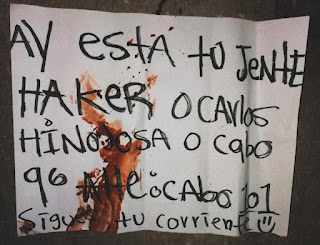 AY ESTA TU JENTE
HAKER O CARLOS
HINOJOSA O CABO
96 ATTE: CABO 101
Sigues tu corriente